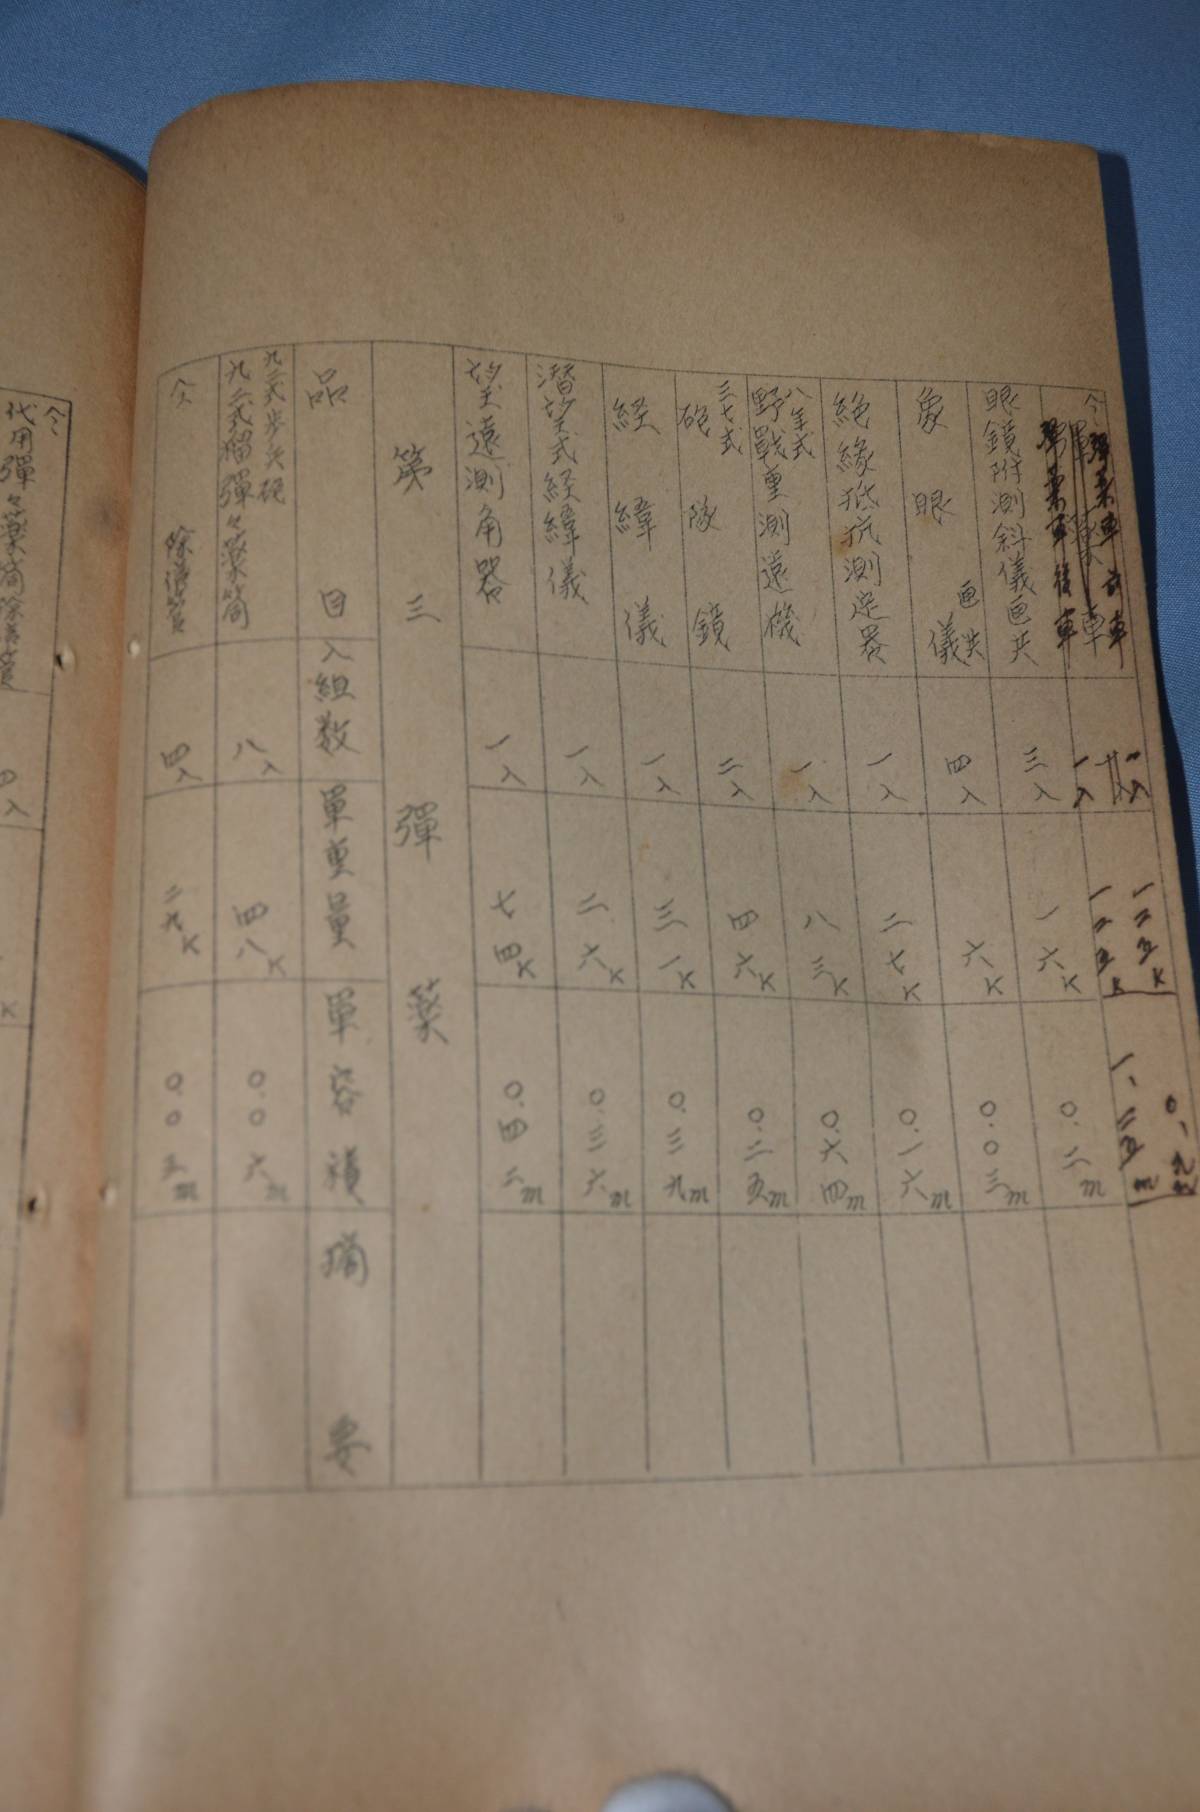 仝 彈薬車 前車 一入 一二五K 〇、九九
彈薬車後車 一入 一二五K 一、二五m
眼鏡附測斜儀画共 三入 一六K 〇.二m
象眼儀画共 四入 六K 〇.〇三m
絶緣抵抗測定器 一入 二七K 〇.一六m
八年式野戰重測遠機 一入 八三K 〇.六四m
三七式砲隊鏡 二入 四六K 〇.二五m
経緯儀 一入 三一K 〇.三九m
潛望式経緯儀 一入 二六K 〇.三六m
望遠測角器 一入 七四K 〇.四二m
第三 彈薬
品目 入組数 單重量 單容積 摘要
九二式歩兵砲
九二式榴彈々薬筒 八入 四八K 〇.〇六m
仝 除信管 四入 二九K 〇.〇三m
仝
代用彈々薬筒除信管 四入 K